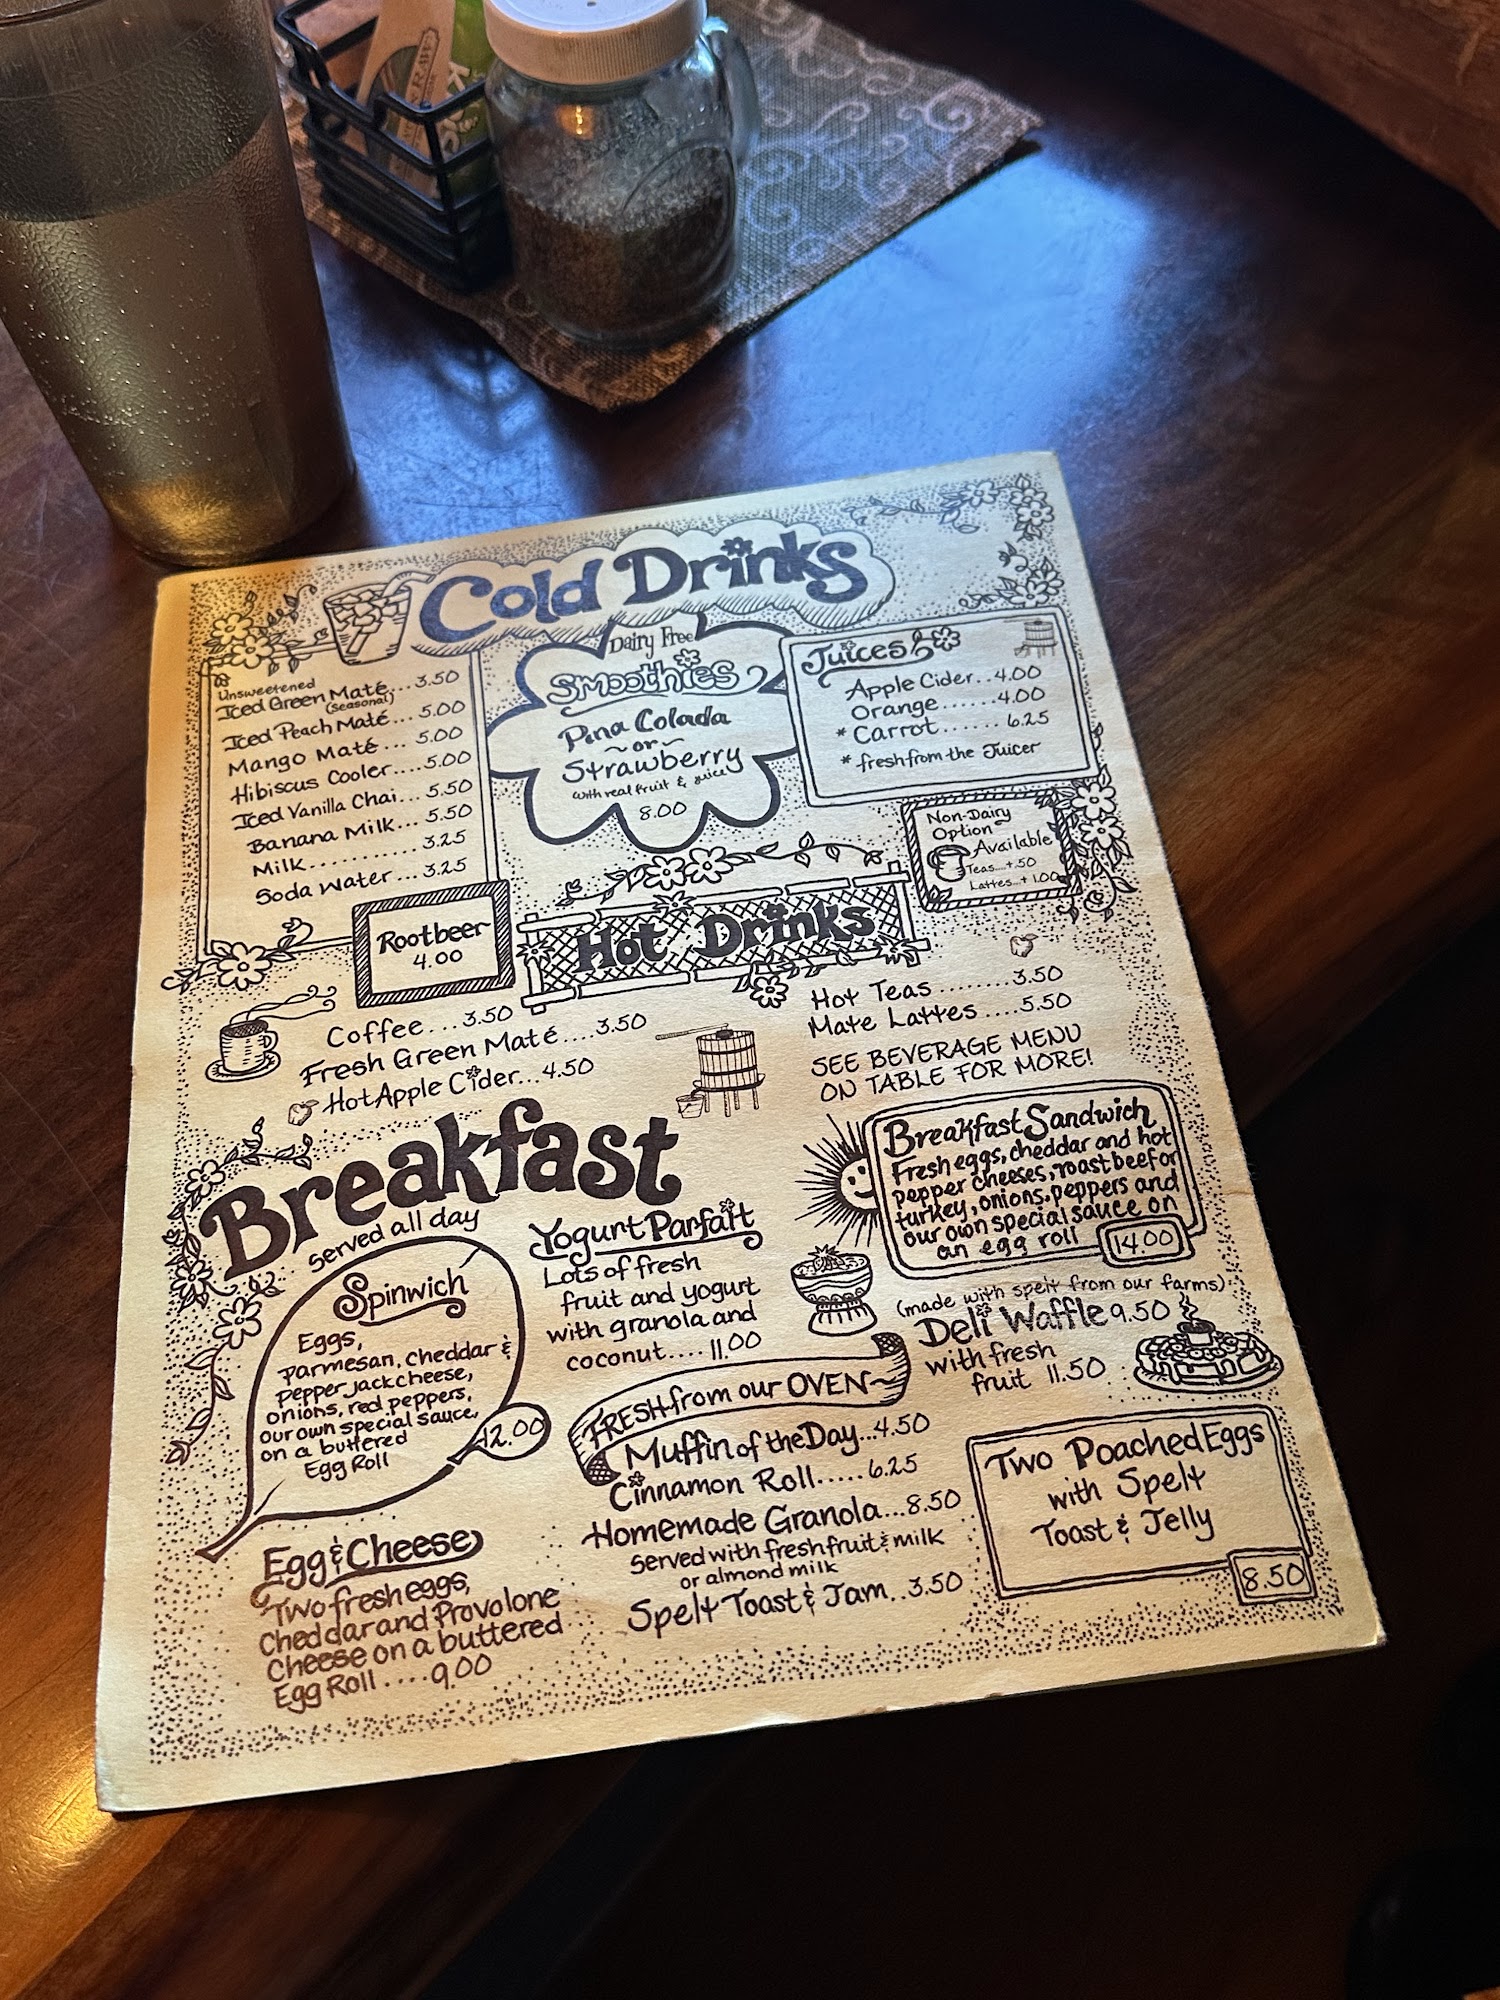 IN THE RAW
Cold Drinks
Unsweetened
Iced Green Maté... 3.50
(Seasonal)
Iced Peach Maté... 5.00
Mango Maté ... 5.00
Hibiscus Cooler.... 5.00
Iced Vanilla Chai... 5.50
Banana Milk... 5.50
Milk........... 3.25
Soda Water ... 3.25
Rootbeer
4.00
Dairy Free
Smoothies
Pina Colada
~or~
Strawberry
with real fruit & juice
8.00
Juices
Apple Cider.. 4.00
Orange....... 4.00
* Carrot...... 6.25
* fresh from the Juicer
Non-Dairy
Option
Available
Teas....+.50
Lattes...+ 1.00
Hot Drinks
Coffee ... 3.50
Fresh Green Maté.... 3.50
Hot Apple Cider... 4.50
Hot Teas ........ 3.50
Mate Lattes .... 5.50
SEE BEVERAGE MENU
ON TABLE FOR MORE!
Breakfast
Served all day
Spinwich
Eggs,
parmesan, cheddar &
pepper jack cheese,
onions, red peppers,
our own special sauce,
on a buttered
Egg Roll
12.00
Egg & Cheese
Two fresh eggs,
Cheddar and Provolone
Cheese on a buttered
Egg Roll .... 9.00
Yogurt Parfait
Lots of fresh
fruit and yogurt
with granola and
coconut.... 11.00
FRESH from our OVEN~
Muffin of the Day... 4.50
Cinnamon Roll..... 6.25
Homemade Granola... 8.50
Served with fresh fruit & milk
or almond milk
Spelt Toast & Jam.. 3.50
Breakfast Sandwich
Fresh eggs, cheddar and hot
pepper cheeses, roast beef or
turkey, onions, peppers and
our own special sauce on
an egg roll
14.00
(made with spelt from our farms)
Deli Waffle 9.50
with fresh
fruit 11.50
Two Poached Eggs
with Spelt
Toast & Jelly
8.50